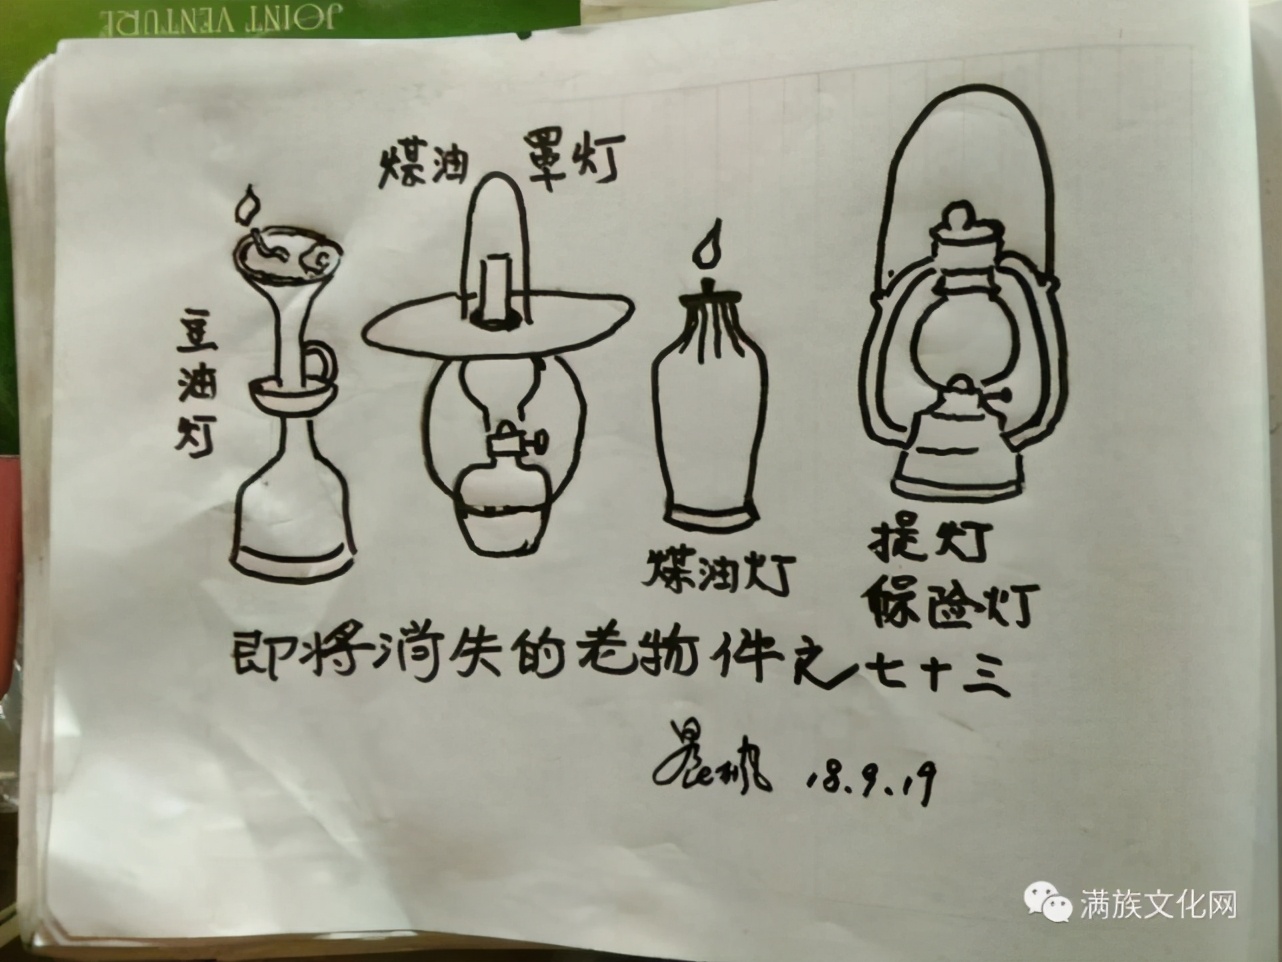 JOINT VENTURE
煤油 罩灯
豆油灯
煤油灯
提灯
保险灯
即将消失的老物件之七十三
18.9.19
满族文化网